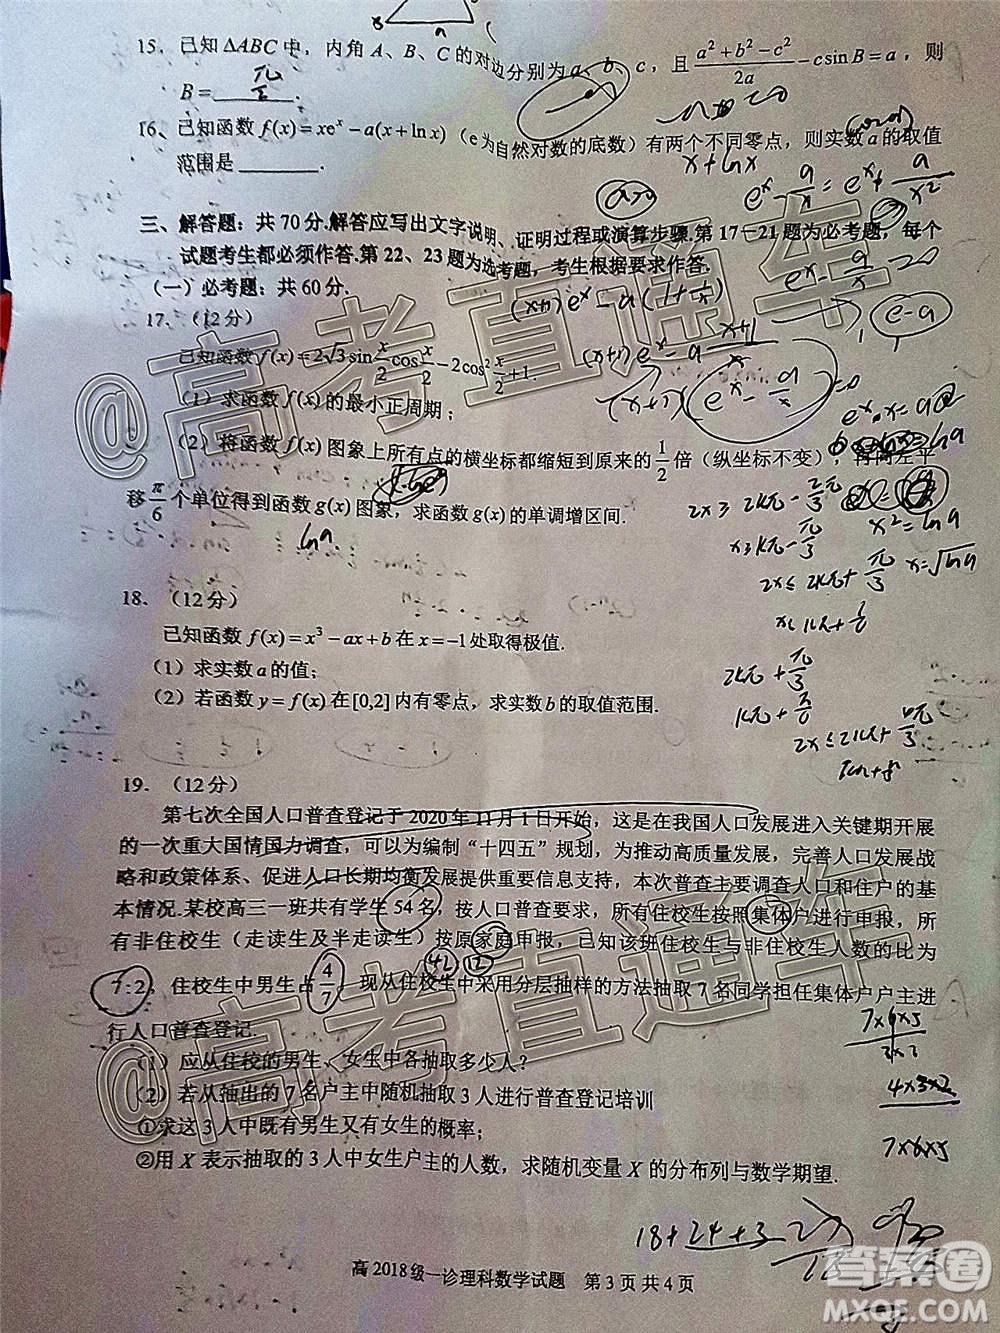 15. 已知 ΔABC 中，内角 A、B、C 的对边分别为 a、b、c，且 (a²+b²−c²)/2a − c sin B = a，则
B = ______. π/2
16、已知函数 f(x) = xeˣ − a(x + ln x)（e为自然对数的底数）有两个不同零点，则实数 a 的取值
范围是 ______.
x+lnx
三、解答题：共 70 分.解答应写出文字说明、证明过程或演算步骤.第 17－21 题为必考题，每个
试题考生都必须作答.第 22、23 题为选考题，考生根据要求作答.
（一）必考题：共 60 分.
(x+1)eˣ − a(1+1/x)
e−a
17. （12分）
已知函数 f(x) = 2√3 sin x/2 cos x/2 − 2cos² x/2 + 1.
（1）求函数 f(x) 的最小正周期；
（2）将函数 f(x) 图象上所有点的横坐标都缩短到原来的 1/2 倍（纵坐标不变），再向左平
移 π/6 个单位得到函数 g(x) 图象，求函数 g(x) 的单调增区间.
lna
x²=lna
x=√lna
18. （12分）
已知函数 f(x) = x³ − ax + b 在 x = −1 处取得极值.
（1）求实数 a 的值；
（2）若函数 y = f(x) 在 [0,2] 内有零点，求实数 b 的取值范围.
2kπ+π/3
19. （12分）
第七次全国人口普查登记于 2020 年 11 月 1 日开始，这是在我国人口发展进入关键期开展
的一次重大国情国力调查，可以为编制“十四五”规划，为推动高质量发展，完善人口发展战
略和政策体系、促进人口长期均衡发展提供重要信息支持，本次普查主要调查人口和住户的基
本情况.某校高三一班共有学生 54 名，按人口普查要求，所有住校生按照集体户进行申报，所
有非住校生（走读生及半走读生）按原家庭申报，已知该班住校生与非住校生人数的比为
42 12
7:2，住校生中男生占 4/7，现从住校生中采用分层抽样的方法抽取 7 名同学担任集体户户主进
行人口普查登记.
（1）应从住校的男生、女生中各抽取多少人？
（2）若从抽出的 7 名户主中随机抽取 3 人进行普查登记培训
①求这 3 人中既有男生又有女生的概率；
②用 X 表示抽取的 3 人中女生户主的人数，求随机变量 X 的分布列与数学期望.
7×6×5
3×2
4×3×2
7×6×5
18+24+3
高 2018 级一诊理科数学试题 第 3 页 共 4 页
@高考直通车
@高考直通车
答案圈
MXQE.COM